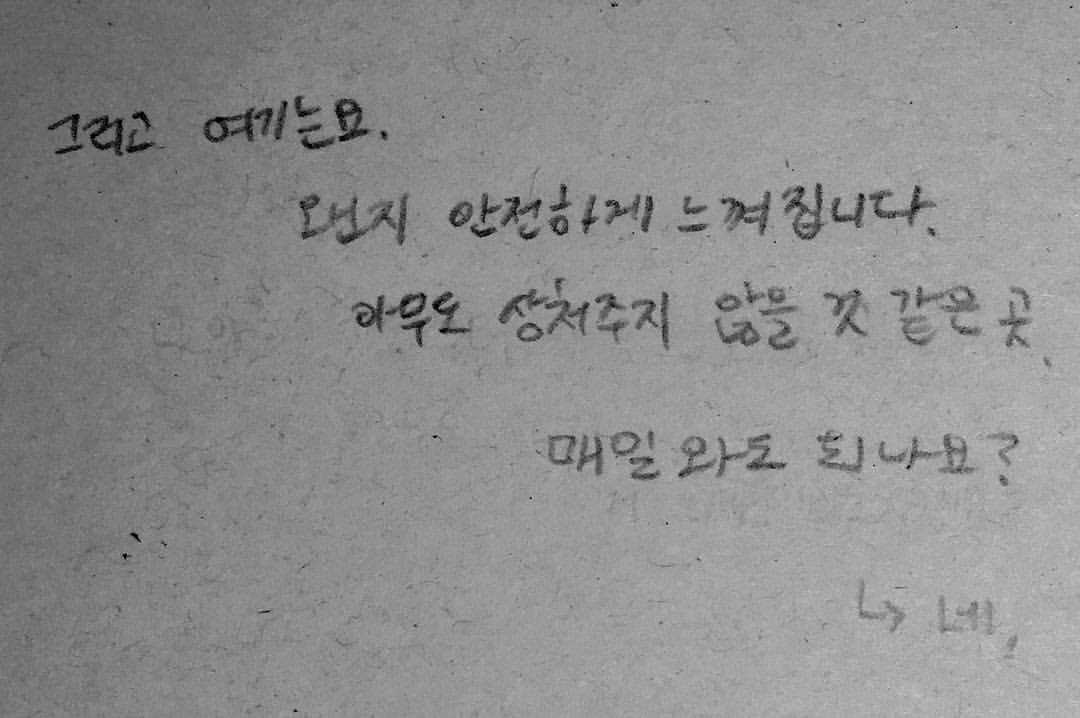 그리고 여기는요.
왠지 안전하게 느껴집니다.
아무도 상처주지 않을 것 같은 곳.
매일 와도 되나요?
↳ 네.